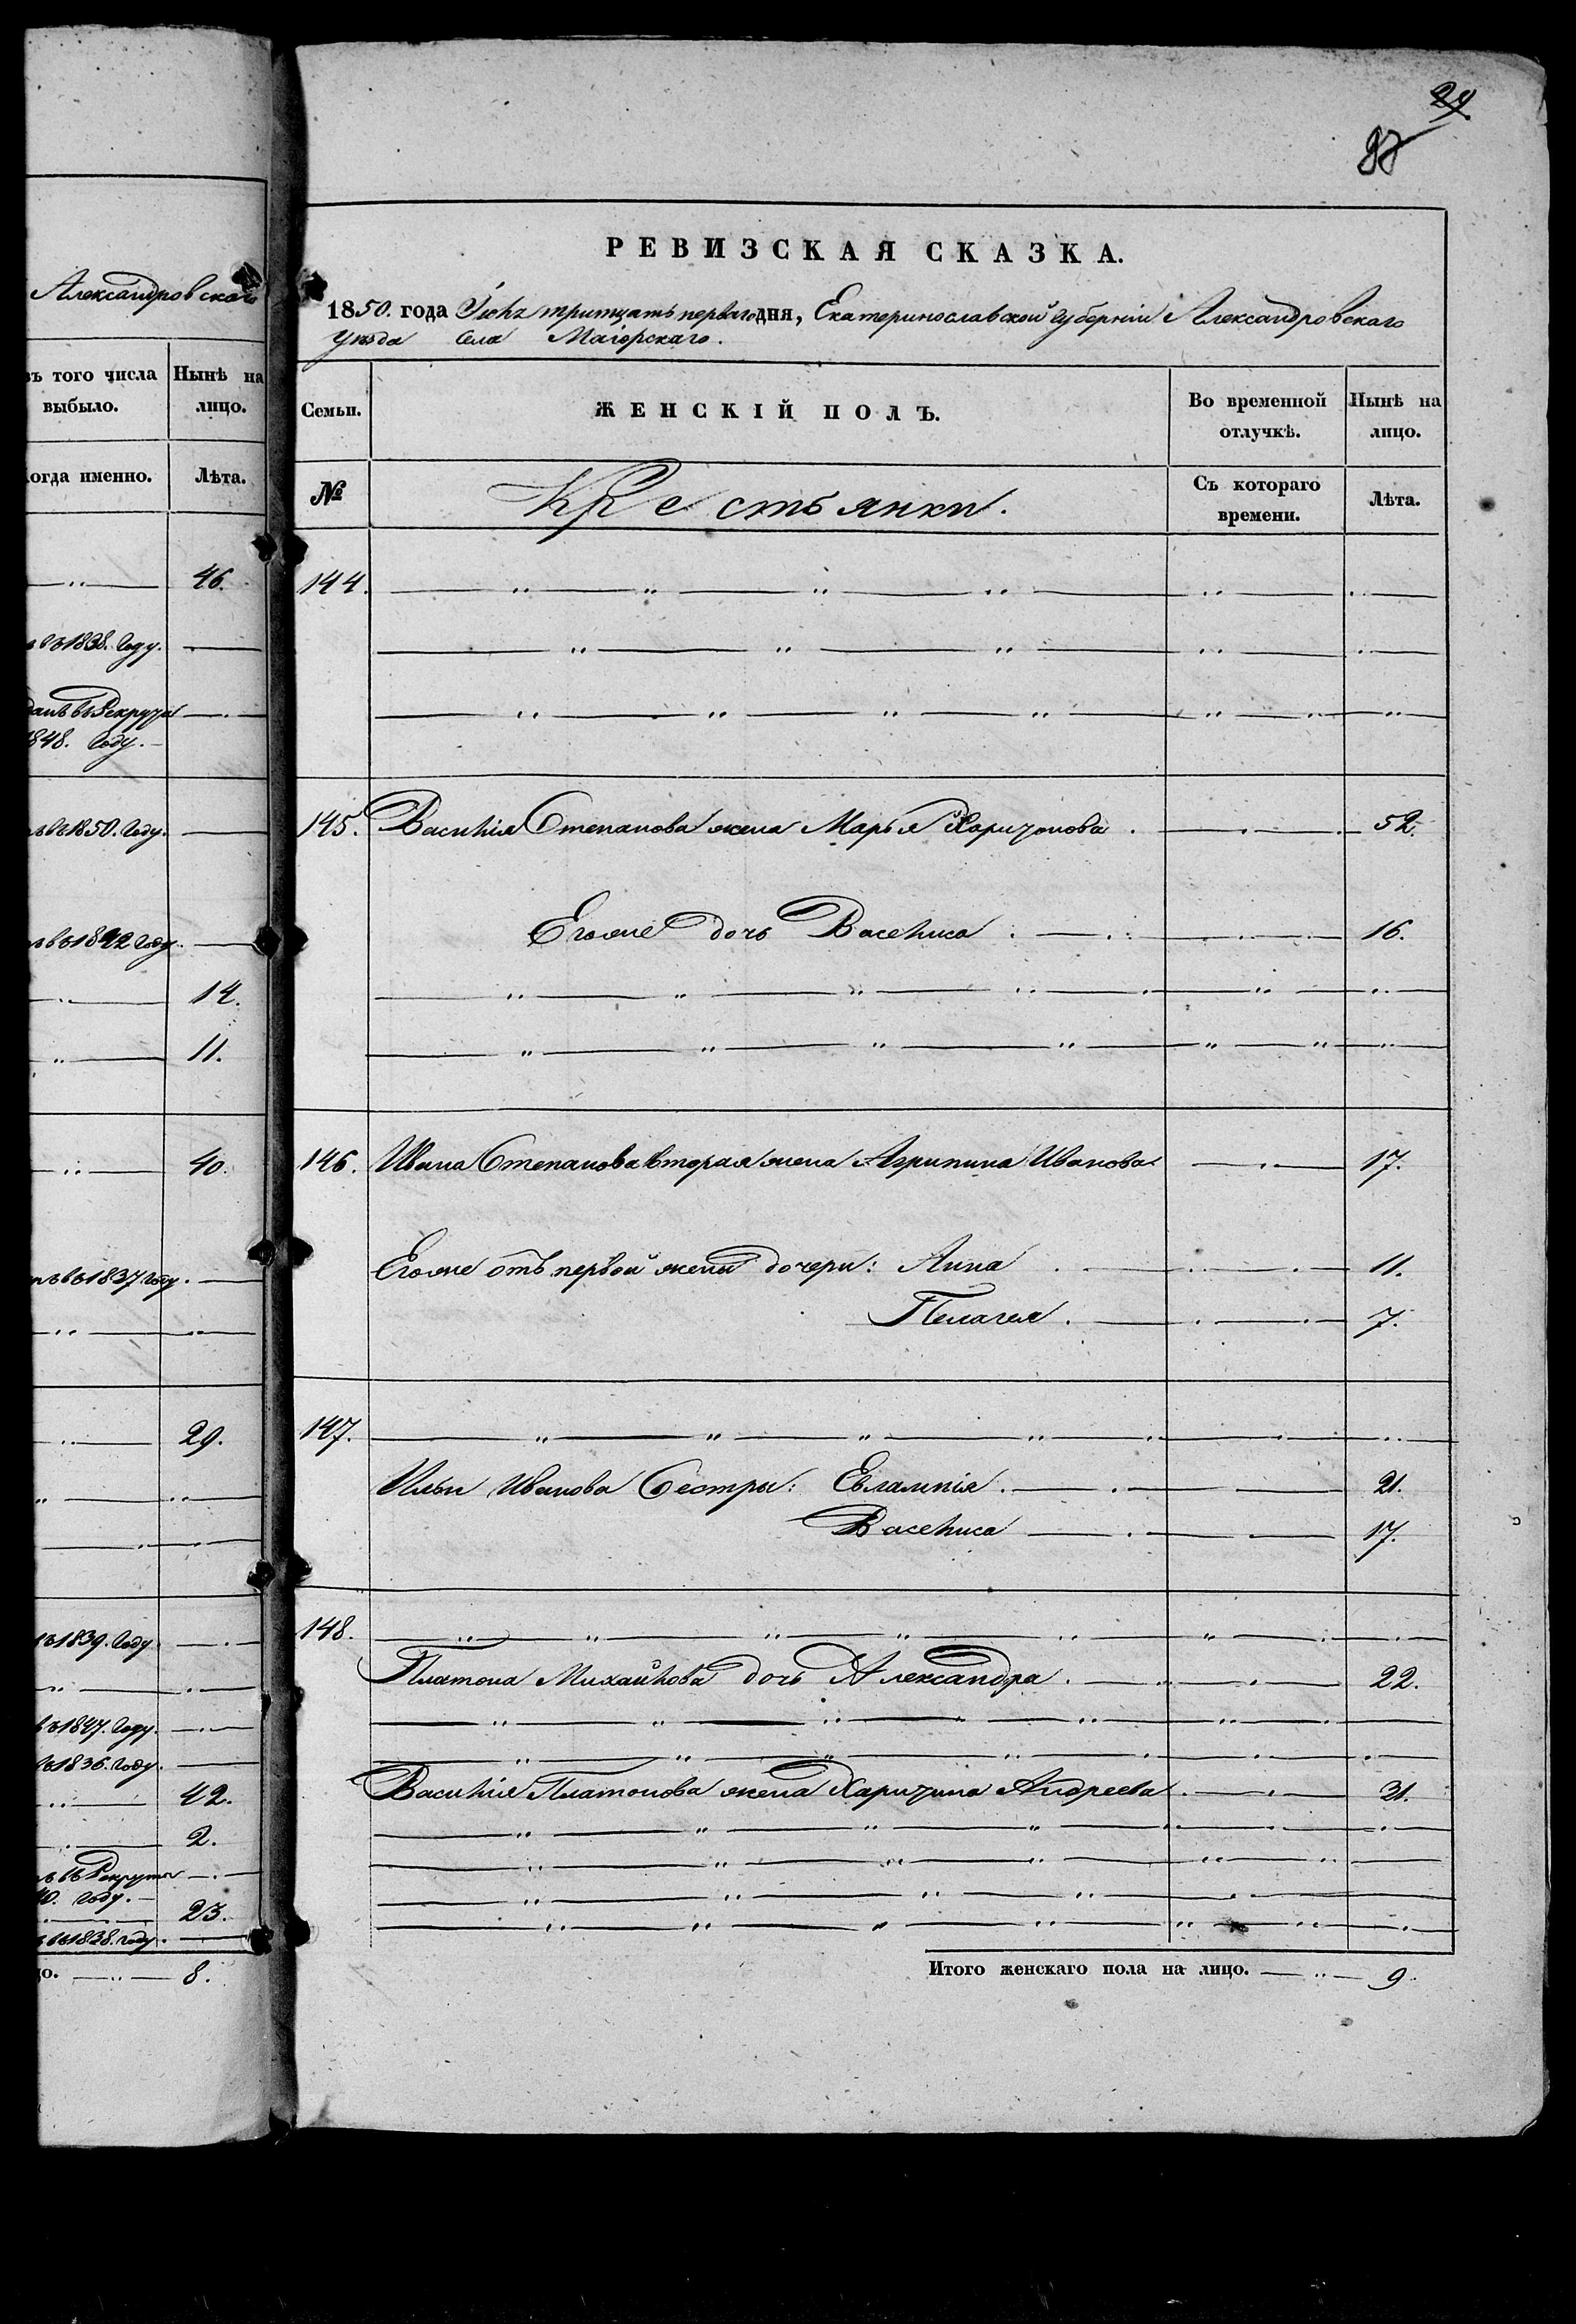 29
87
Александровскаго
въ того числа Нынѣ на
выбыло. лицо.
Когда именно. Лѣта.
46.
въ 1838. Году.
въ Рекруты
1848. Году.
въ 1850. Году.
въ 1842 Году.
14.
11.
40.
въ 1837 Году.
29.
1839. Году.
1847. Году.
1836. Году.
42.
2.
въ Рекруты
40. Году.
23.
1838. Году.
8.
РЕВИЗСКАЯ СКАЗКА.
1850. года Июля тритцать перваго дня, Екатеринославской губерніи Александровскаго
уѣзда села Маіорскаго.
Семьи. ЖЕНСКІЙ ПОЛЪ. Во временной Нынѣ на
отлучкѣ. лицо.
№ Крестьянки. Съ котораго Лѣта.
времени.
144.
145. Василія Степанова жена Марья Харизонова 52.
Егоже дочь Василиса 16.
146. Ивана Степанова вторая жена Агрипина Иванова 17.
Егоже отъ первой жены дочери: Анна 11.
Пелагея 7.
147.
Ильи Иванова Сестры: Евлампія 21.
Василиса 17.
148.
Платона Михайлова дочь Александра 22.
Василія Платонова жена Харизина Андреева 31.
Итого женскаго пола на лицо. 9